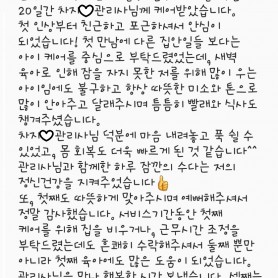 20일간 차지♥관리사님께 케어받았습니다.
첫 인상부터 친근하고 포근하셔서 안심이
되었습니다! 첫 만남에 다른 집안일들 보다는
아이 케어를 중심으로 부탁드렸었는데, 새벽
육아로 인해 잠을 자지 못한 저를 위해 많이 우는
아이임에도 불구하고 항상 따뜻한 미소와 톤으로
많이 안아주고 달래주시며 틈틈히 빨래와 식사도
챙겨주셨습니다.
차지♥관리사님 덕분에 마음 내려놓고 푹 쉴 수
있었고, 몸 회복도 더욱 빠르게 된 것 같습니다^^
관리사님과 함께한 하루 잠깐의 수다는 저의
정신건강을 지켜주었습니다👍
또, 첫째도 따뜻하게 맞아주시며 예뻐해주셔서
정말 감사했습니다. 서비스기간동안 첫째
케어를 위해 집을 비우거나, 근무시간 조정을
부탁드렸는데도 흔쾌히 수락해주셔서 둘째 뿐만
아니라 첫째 육아에도 많은 도움이 되었습니다.
관리사님을 만나 행복한 시간 보냈습니다.